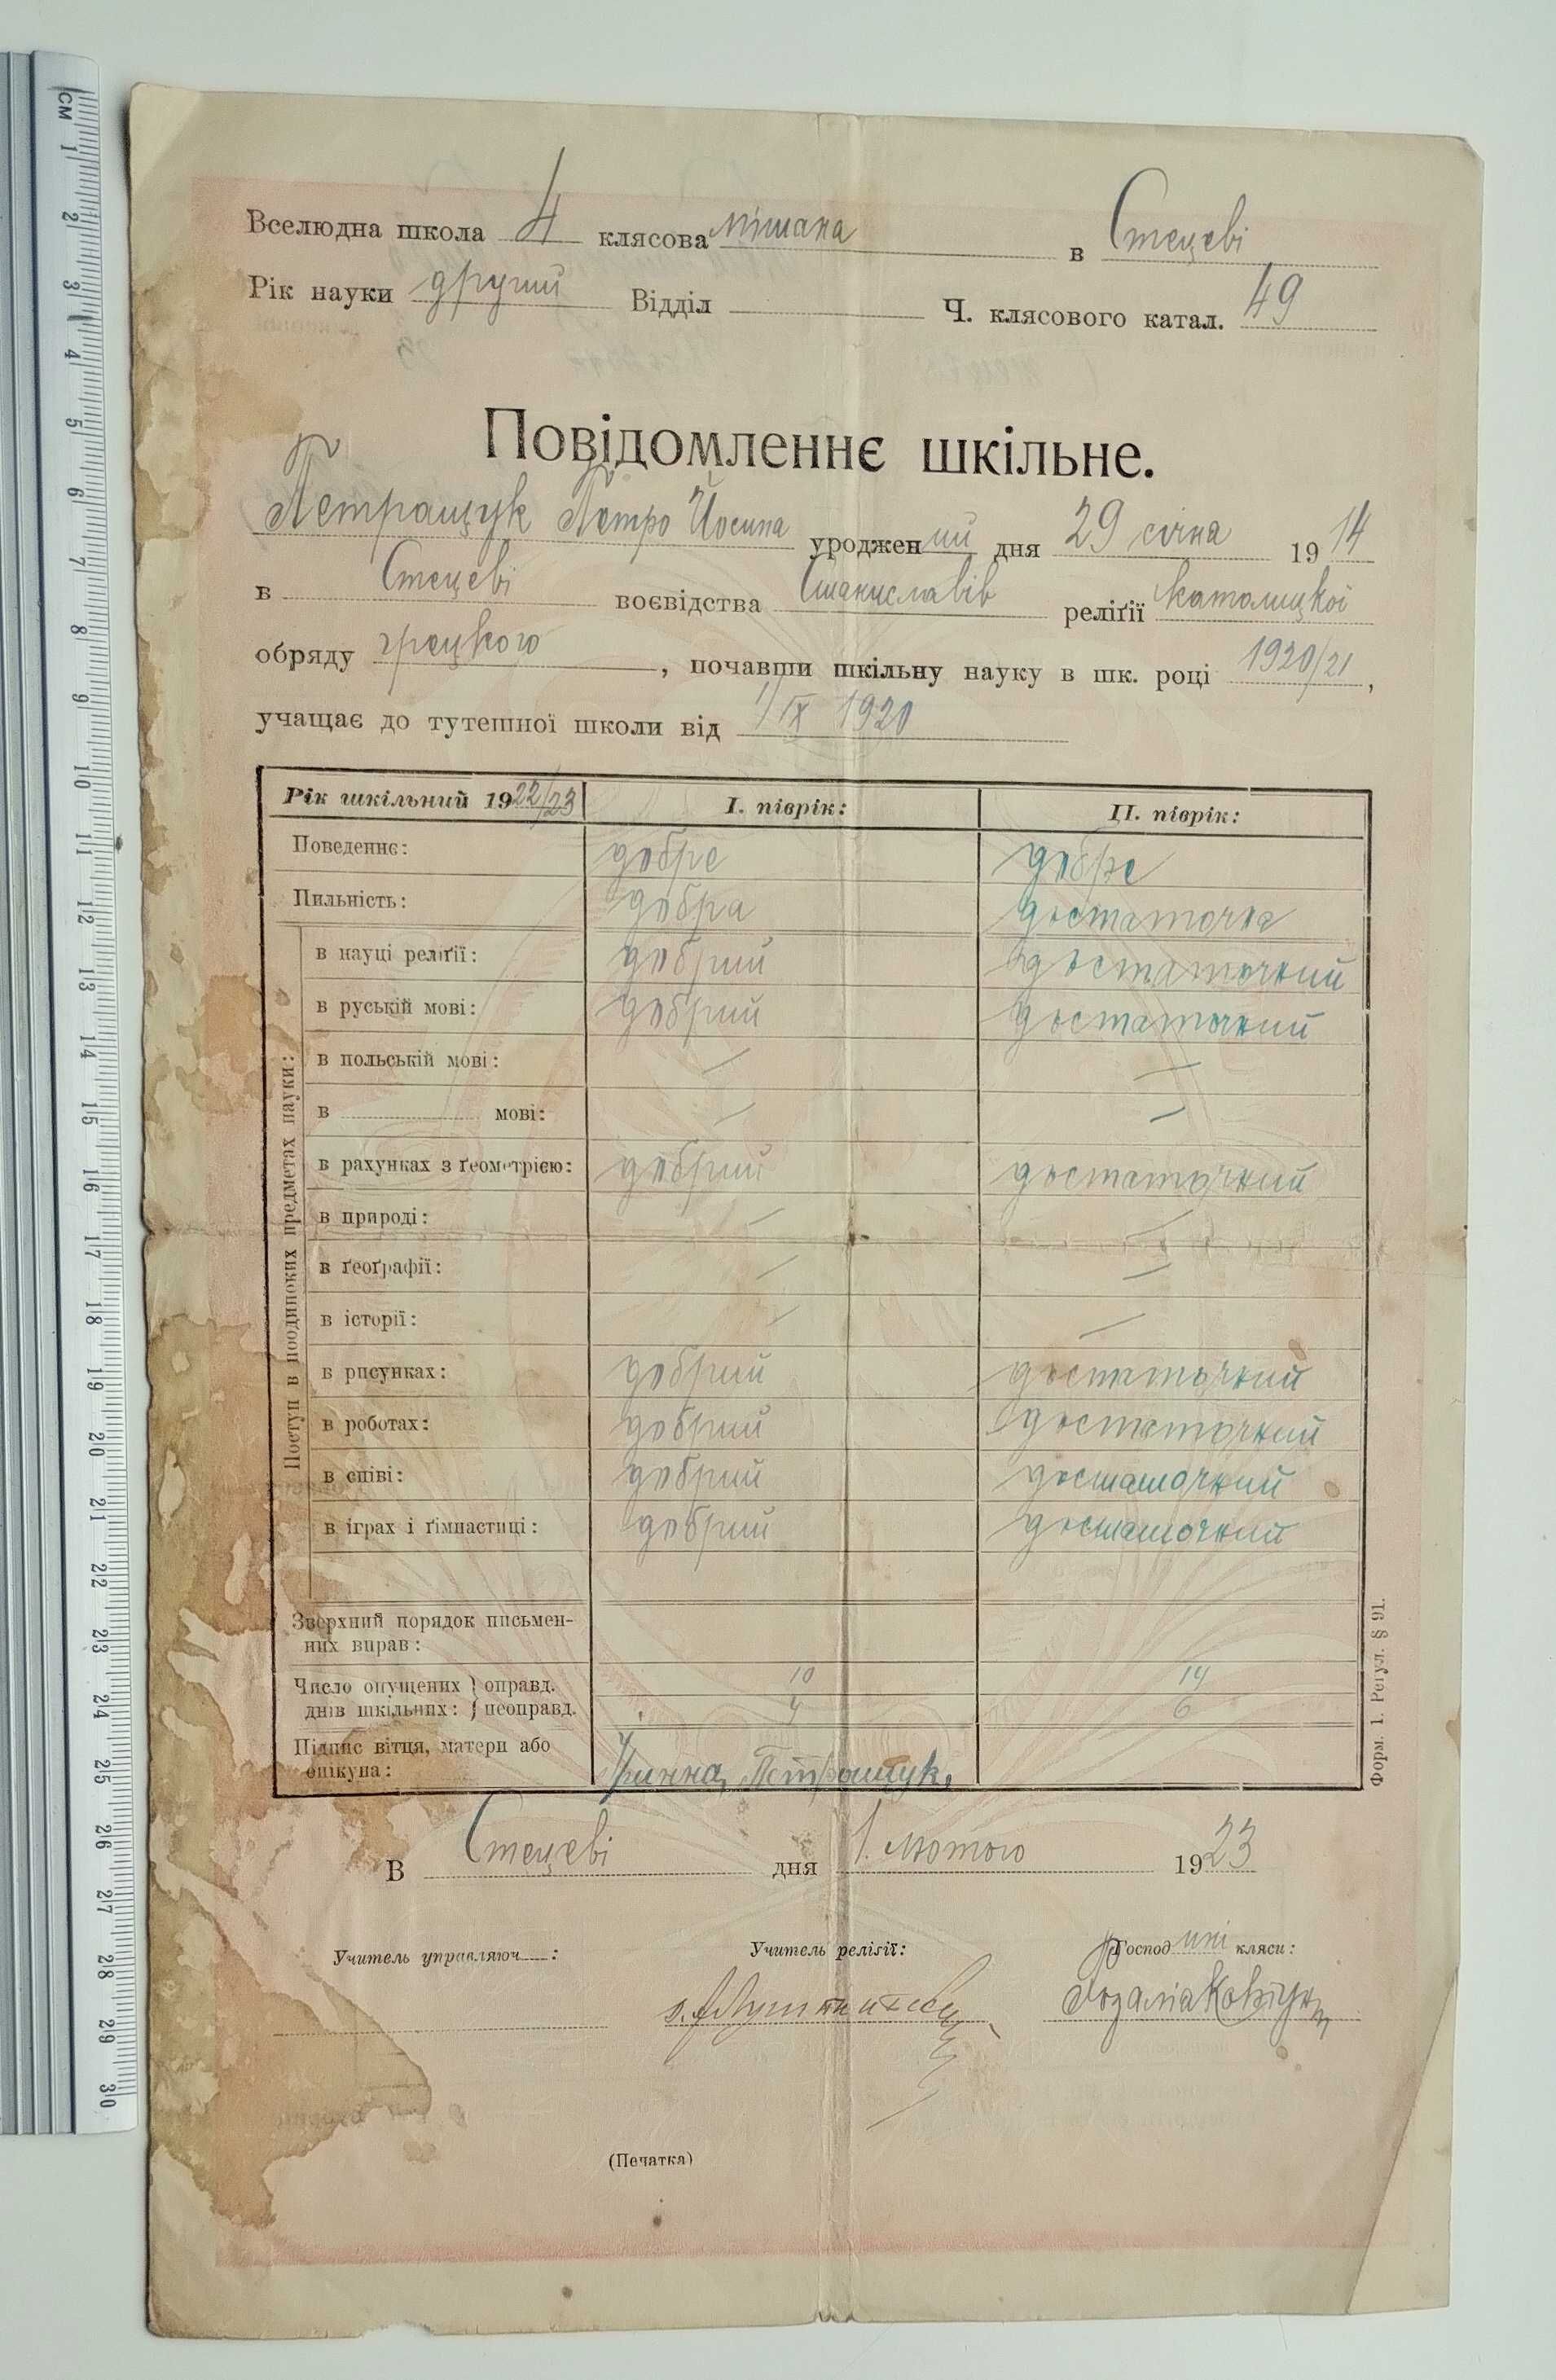 Вселюдна школа 4 клясова мішана в Стецеві
Рік науки другий Відділ Ч. клясового катал. 49
Повідомленнє шкільне.
Петращук Петро Йосипа уродженый дня 29 січня 1914
в Стецеві воєвідства Станиславів реліґії католицкої
обряду грецкого, почавши шкільну науку в шк. році 1920/21,
учащає до тутешної школи від 1/IX 1920
Рік шкільний 1922/23 I. піврік: II. піврік:
Поведеннє: добре добре
Пильність: добра достаточна
Поступ в поодиноких предметах науки:
в науці реліґії: добрий достаточний
в руській мові: добрий достаточний
в польській мові: — —
в мові: — —
в рахунках з ґеометрією: добрий достаточний
в природі: — —
в ґеоґрафії: — —
в історії: — —
в рисунках: добрий достаточний
в роботах: добрий достаточний
в співі: добрий достаточний
в іграх і ґімнастиці: добрий достаточний
Зверхний порядок письмен-
них вправ:
Число опущених } оправд. 10 14
днів шкільних: } неоправд. 4 6
Підпис вітця, матери або
опікуна: Гринна Петращук.
Форм. 1. Реґул. § 91.
В Стецеві дня 1. лютого 1923
Учитель управляюч : Учитель реліґії: Господині кляси:
Розалія
(Печатка)
см 1 2 3 4 5 6 7 8 9 10 11 12 13 14 15 16 17 18 19 20 21 22 23 24 25 26 27 28 29 30